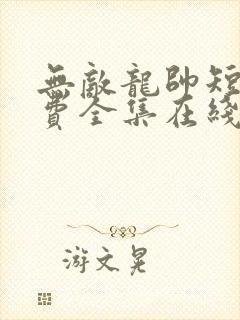 無敵龍帥短
費全集在綫
游文晃